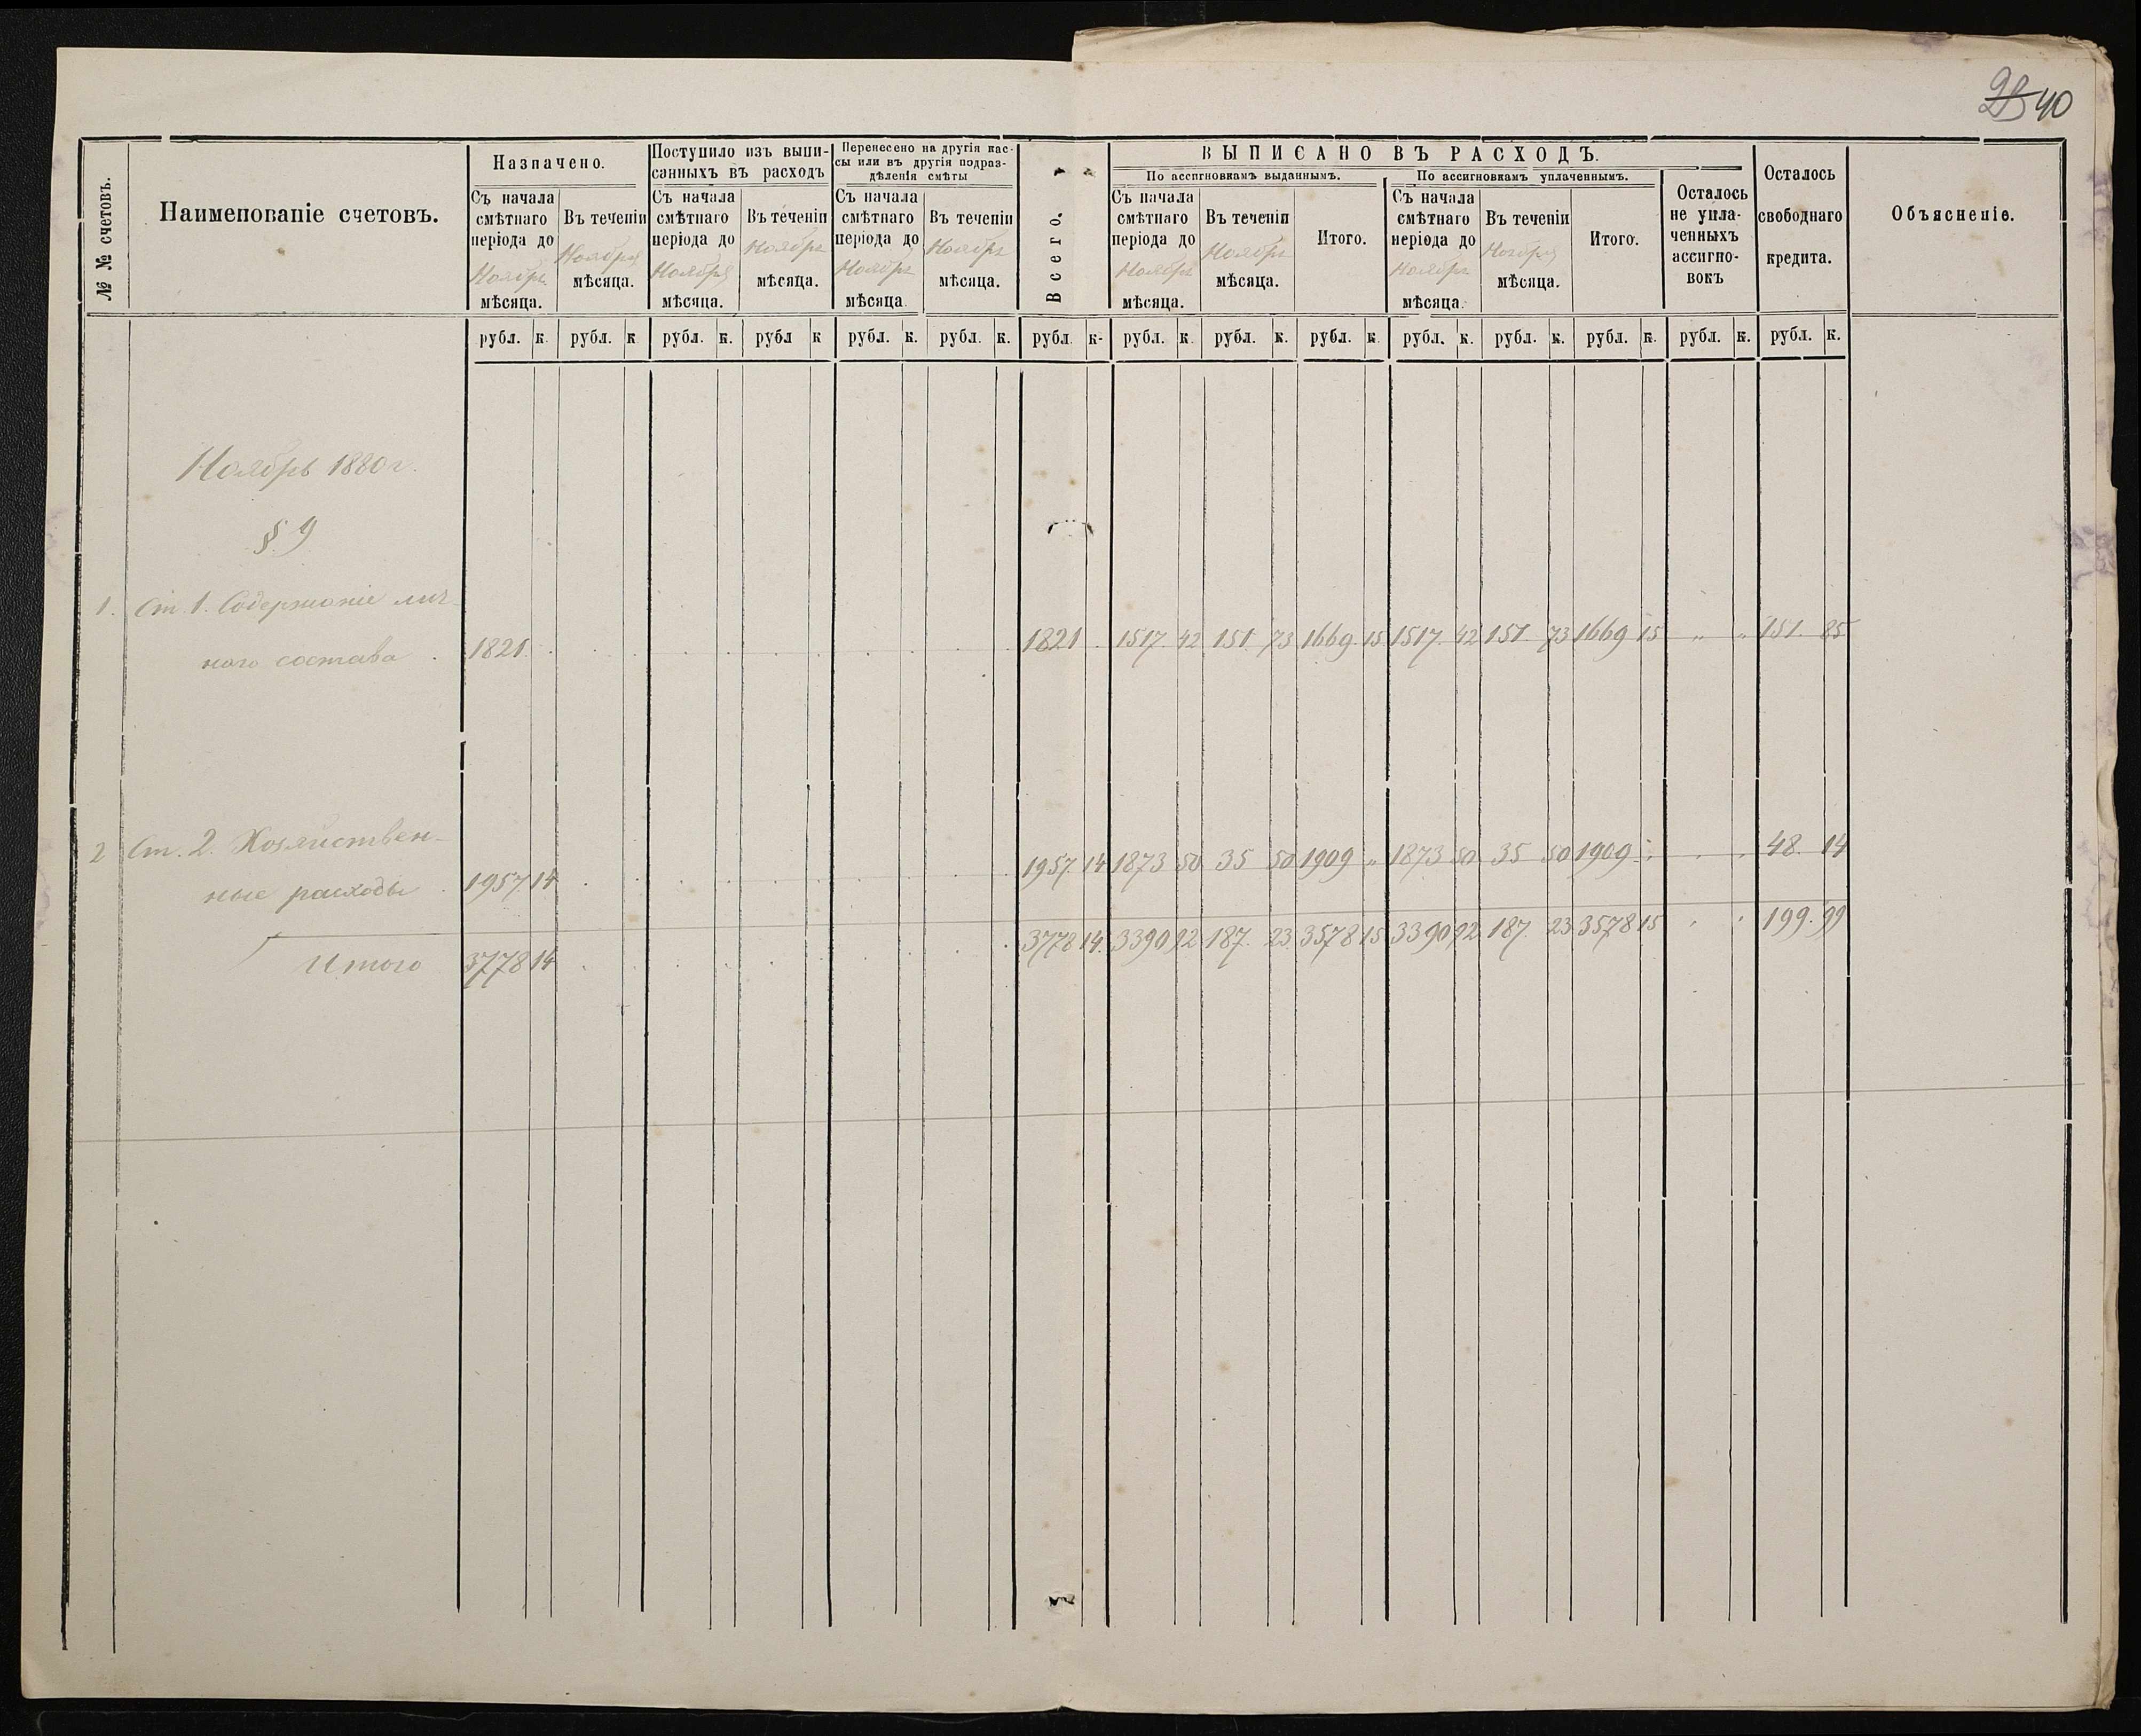 40
№ № счетовъ.
Наименованіе счетовъ.
Назначено.
Съ начала
смѣтнаго
періода до
Ноября
мѣсяца.
Въ теченіи
Ноября
мѣсяца.
Поступило изъ выпи-
санныхъ въ расходъ
Съ начала
смѣтнаго
періода до
Ноября
мѣсяца.
Въ теченіи
Ноября
мѣсяца.
Перенесено на другія кас-
сы или въ другія подраз-
дѣленія смѣты
Съ начала
смѣтнаго
періода до
Ноября
мѣсяца.
Въ теченіи
Ноября
мѣсяца.
Всего.
ВЫПИСАНО ВЪ РАСХОДЪ.
По ассигновкамъ выданнымъ.
Съ начала
смѣтнаго
періода до
Ноября
мѣсяца.
Въ теченіи
Ноября
мѣсяца.
Итого.
По ассигновкамъ уплаченнымъ.
Съ начала
смѣтнаго
періода до
Ноября
мѣсяца.
Въ теченіи
Ноября
мѣсяца.
Итого.
Осталось
не упла-
ченныхъ
ассигно-
вокъ
Осталось
свободнаго
кредита.
Объясненіе.
рубл. к. рубл. к рубл. к. рубл к рубл. к. рубл. к. рубл. к. рубл. к. рубл. к. рубл. к. рубл. к. рубл. к. рубл. к. рубл. к. рубл. к.
Ноябрь 1880 г.
§ 9
1. Ст. 1. Содержаніе лич-
наго состава . 1821. 1821 . 1517. 42 151. 73 1669. 15 1517. 42 151. 73 1669 15 „ „ 151. 85
2 Ст. 2. Хозяйствен-
ные расходы . 1957 14 1957. 14 1873 50 35 50 1909 „ 1873 50 35 50 1909 48. 14
Итого 3778 14 3778 14. 3390 92 187. 23 3578 15 3390 92 187. 23 3578 15 199. 99